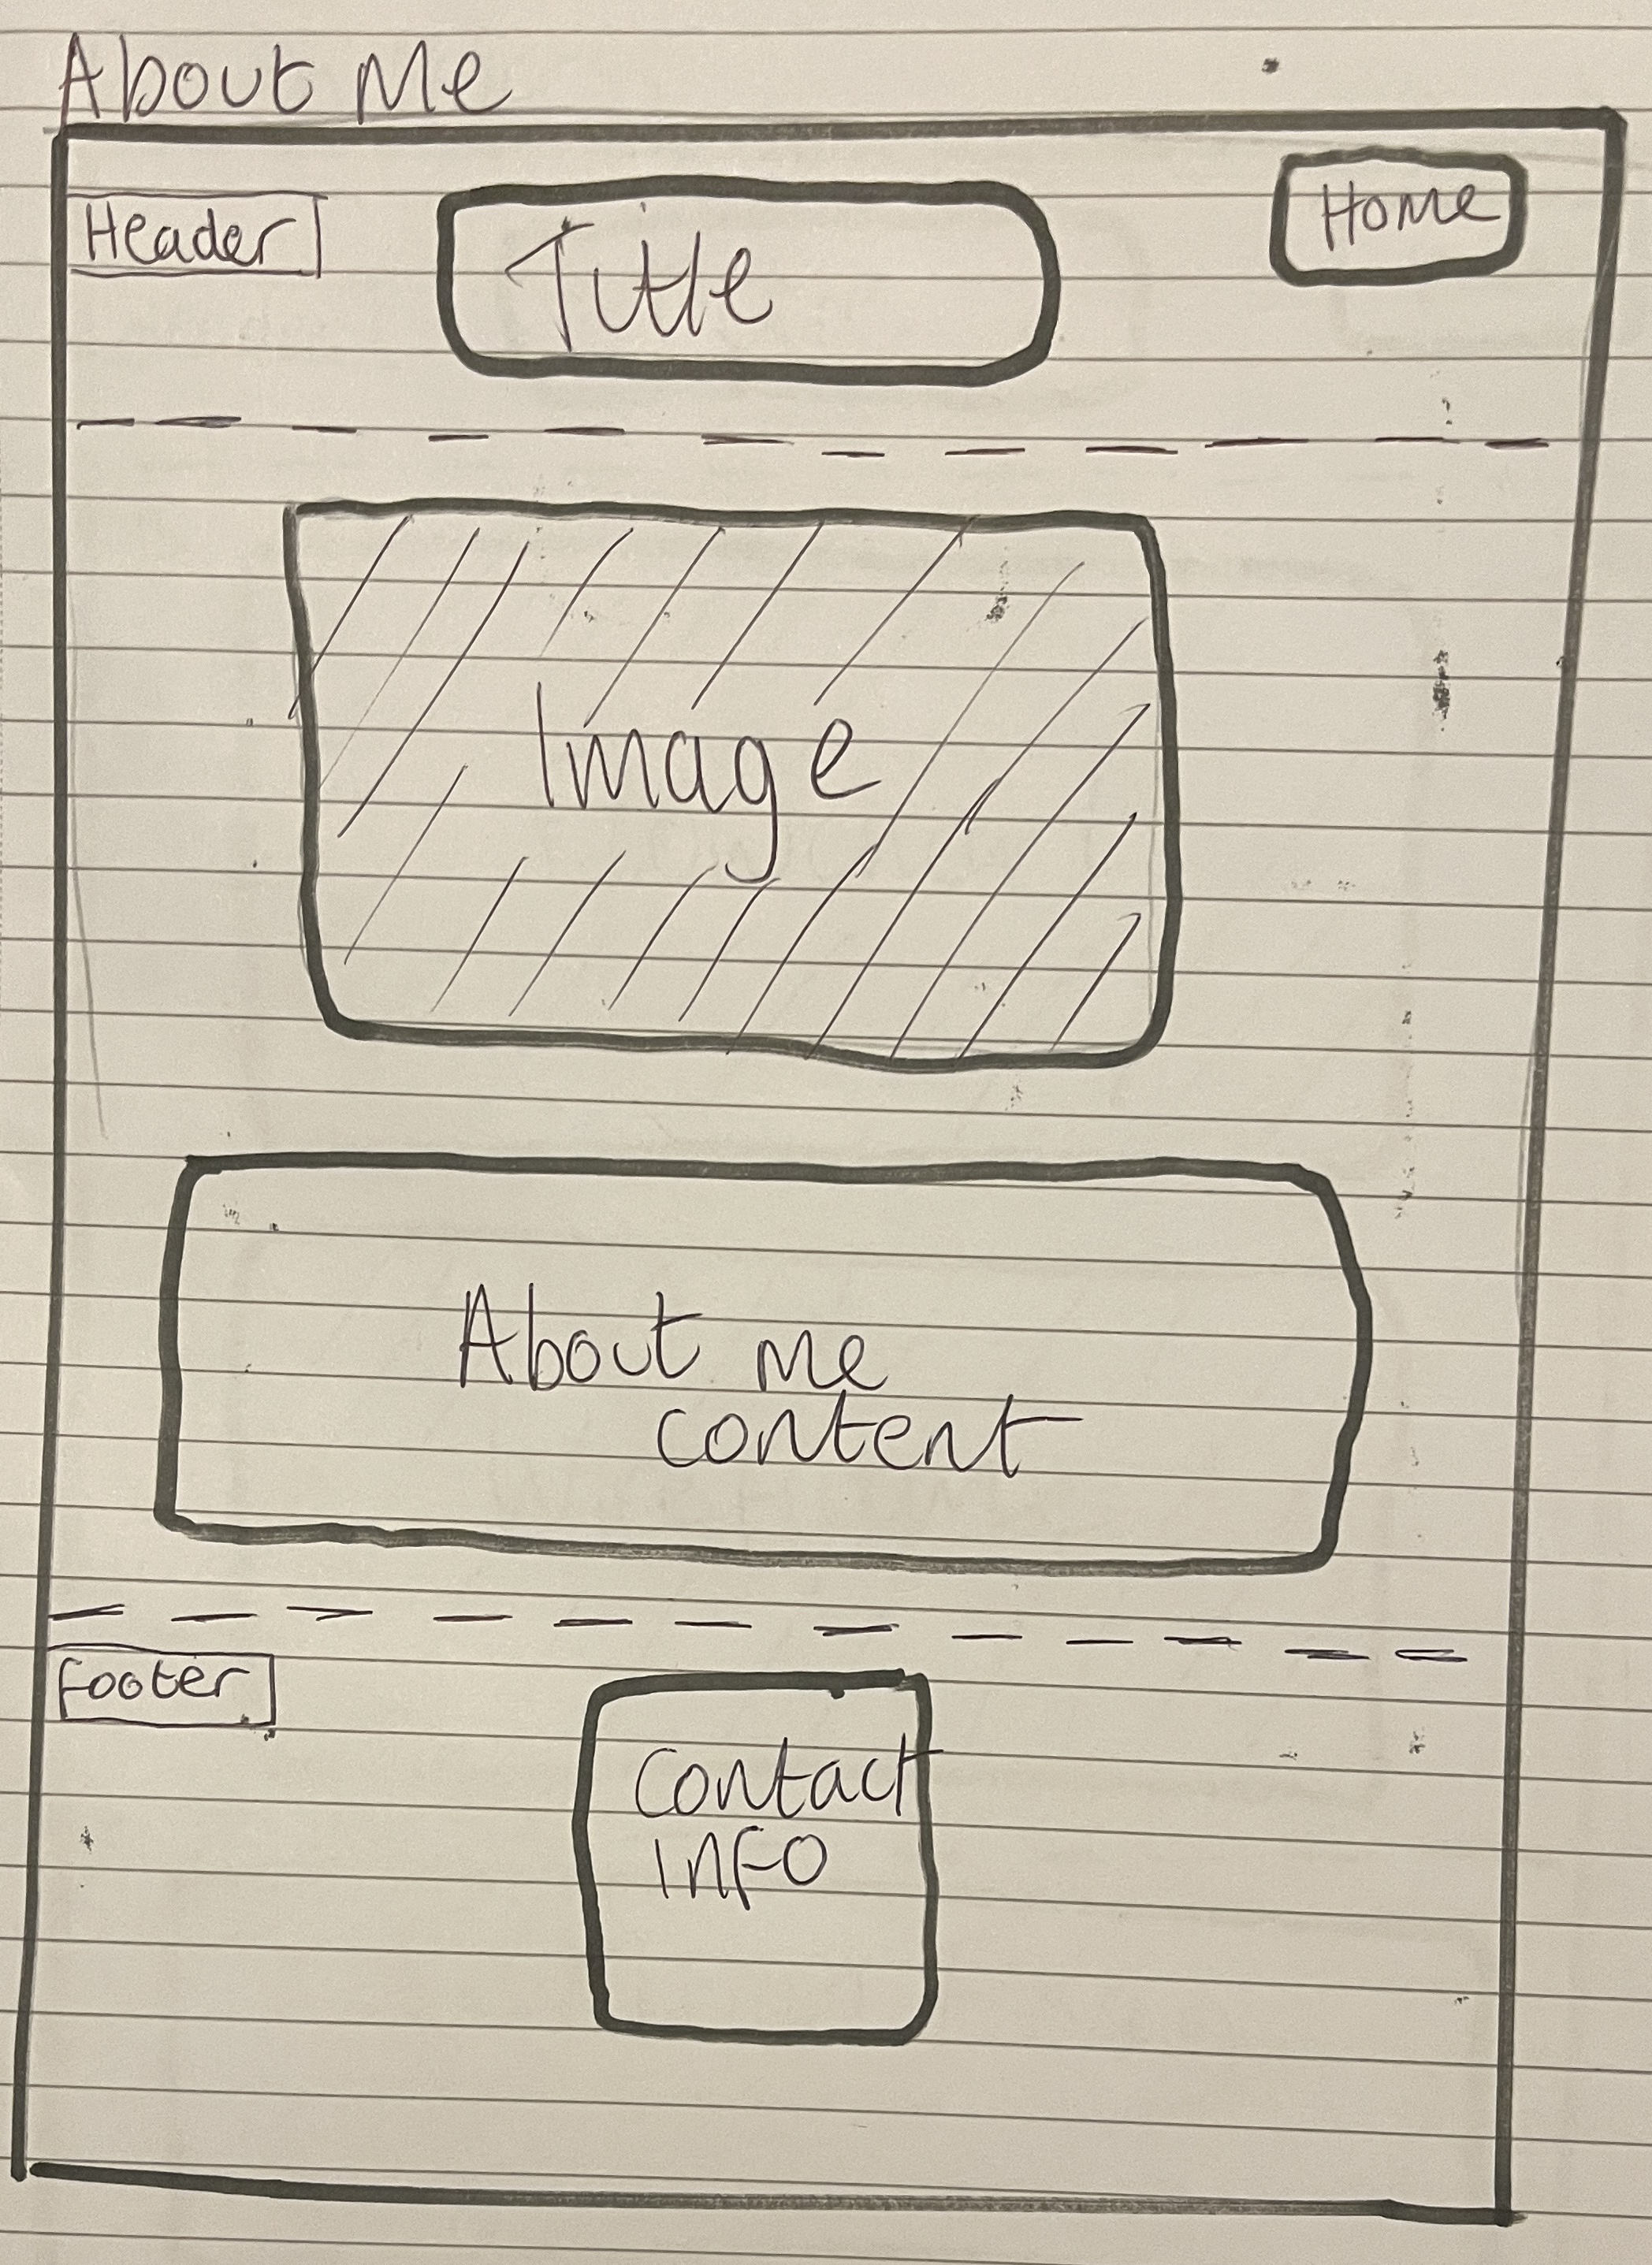 About Me
Header
Title
Home
Image
About me
content
Footer
Contact
info